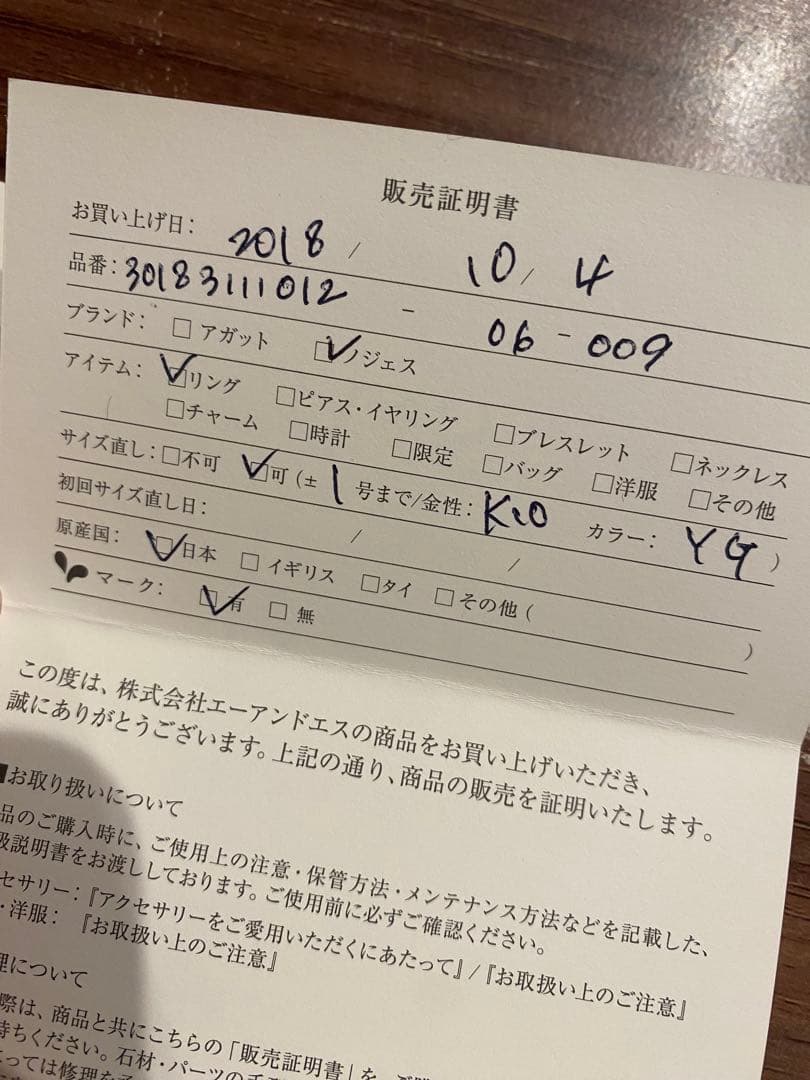 販売証明書
お買い上げ日: 2018 / 10 / 4
品番: 30183111012 - 06 - 009
ブランド: □ アガット ☑ノジェス
アイテム: ☑リング □ピアス・イヤリング □ブレスレット □ネックレス
□チャーム □時計 □限定 □バッグ □洋服 □その他
サイズ直し: □不可 ☑可(± 1 号まで/金性: K10 カラー: YG )
初回サイズ直し日: / /
原産国: ☑日本 □ イギリス □タイ □その他( )
マーク: ☑有 □ 無
この度は、株式会社エーアンドエスの商品をお買い上げいただき、
誠にありがとうございます。上記の通り、商品の販売を証明いたします。
■お取り扱いについて
品のご購入時に、ご使用上の注意・保管方法・メンテナンス方法などを記載した、
扱説明書をお渡ししております。ご使用前に必ずご確認ください。
セサリー:『アクセサリーをご愛用いただくにあたって』/『お取扱い上のご注意』
・洋服: 『お取扱い上のご注意』
理について
際は、商品と共にこちらの「販売証明書」を、ご
持ちください。石材・パーツの
よっては修理を